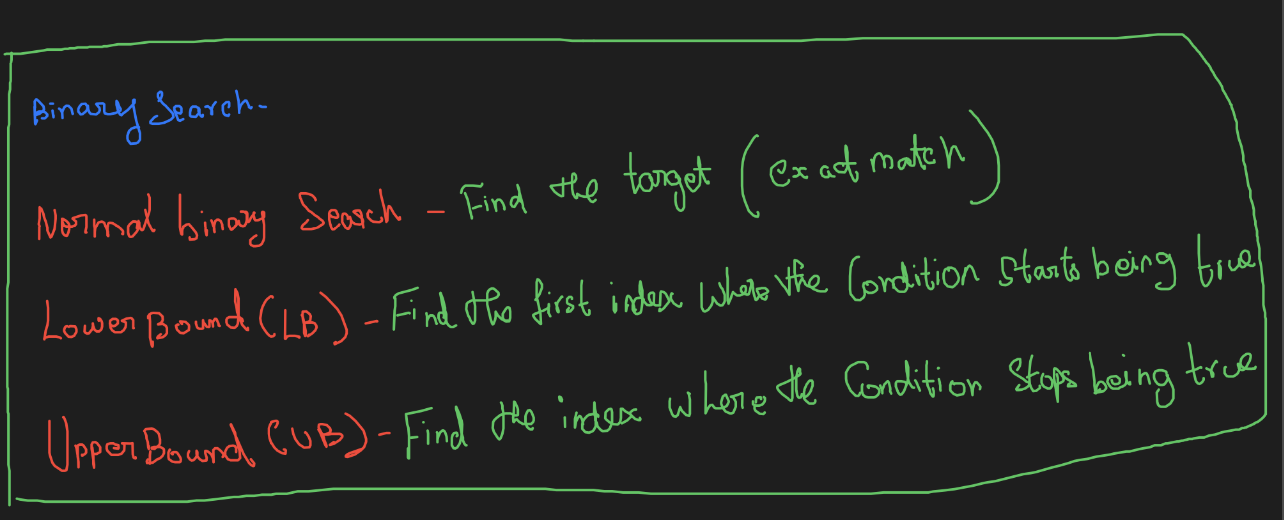 Binary Search-
Normal binary Search - Find the target (exact match)
Lower Bound (LB) - Find the first index where the Condition starts being true
Upper Bound (UB) - Find the index where the Condition stops being true